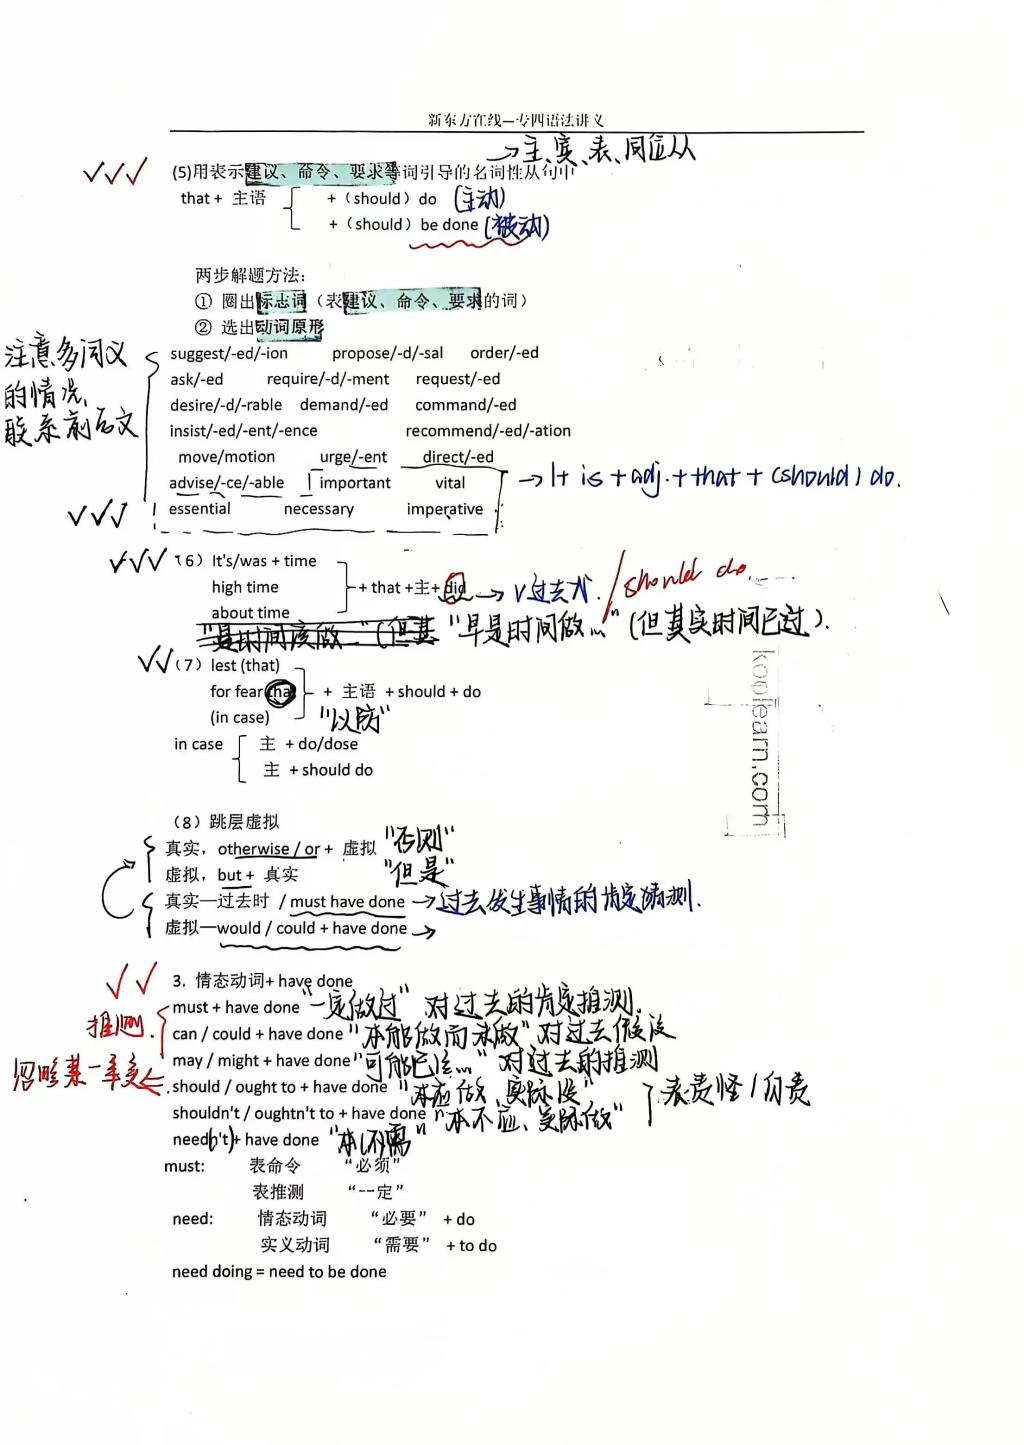 新东方在线—专四语法讲义
→主、宾、表、同位从
(5)用表示建议、命令、要求等词引导的名词性从句中
that + 主语 +（should）do (主动)
+（should）be done (被动)
两步解题方法:
① 圈出标志词（表建议、命令、要求的词）
② 选出动词原形
注意多词义
的情况,
联系前后文
suggest/-ed/-ion propose/-d/-sal order/-ed
ask/-ed require/-d/-ment request/-ed
desire/-d/-rable demand/-ed command/-ed
insist/-ed/-ent/-ence recommend/-ed/-ation
move/motion urge/-ent direct/-ed
advise/-ce/-able important vital → It is + adj. + that + (should) do.
essential necessary imperative
（6）It's/was + time
high time + that +主+ did → v过去式 / should do
about time
"是时间该做…" (但其 "早是时间做…" (但其实时间已过).
（7）lest (that)
for fear that + 主语 + should + do
(in case) "以防"
in case 主 + do/dose
主 + should do
koolearn.com
（8）跳层虚拟
真实，otherwise / or + 虚拟 "否则"
虚拟，but + 真实 "但是"
真实—过去时 / must have done → 过去发生事情的肯定猜测.
虚拟—would / could + have done →
3. 情态动词+ have done
must + have done "一定做过" 对过去的肯定推测.
推测.
can / could + have done "本能做而未做" 对过去假设
may / might + have done "可能已经…" 对过去的推测
should / ought to + have done "本应做,实际没"
表责怪/自责
shouldn't / oughtn't to + have done "本不应、实际做"
need(n't)+ have done "本(不)需"
must: 表命令 “必须”
表推测 “一定”
need: 情态动词 “必要” + do
实义动词 “需要” + to do
need doing = need to be done